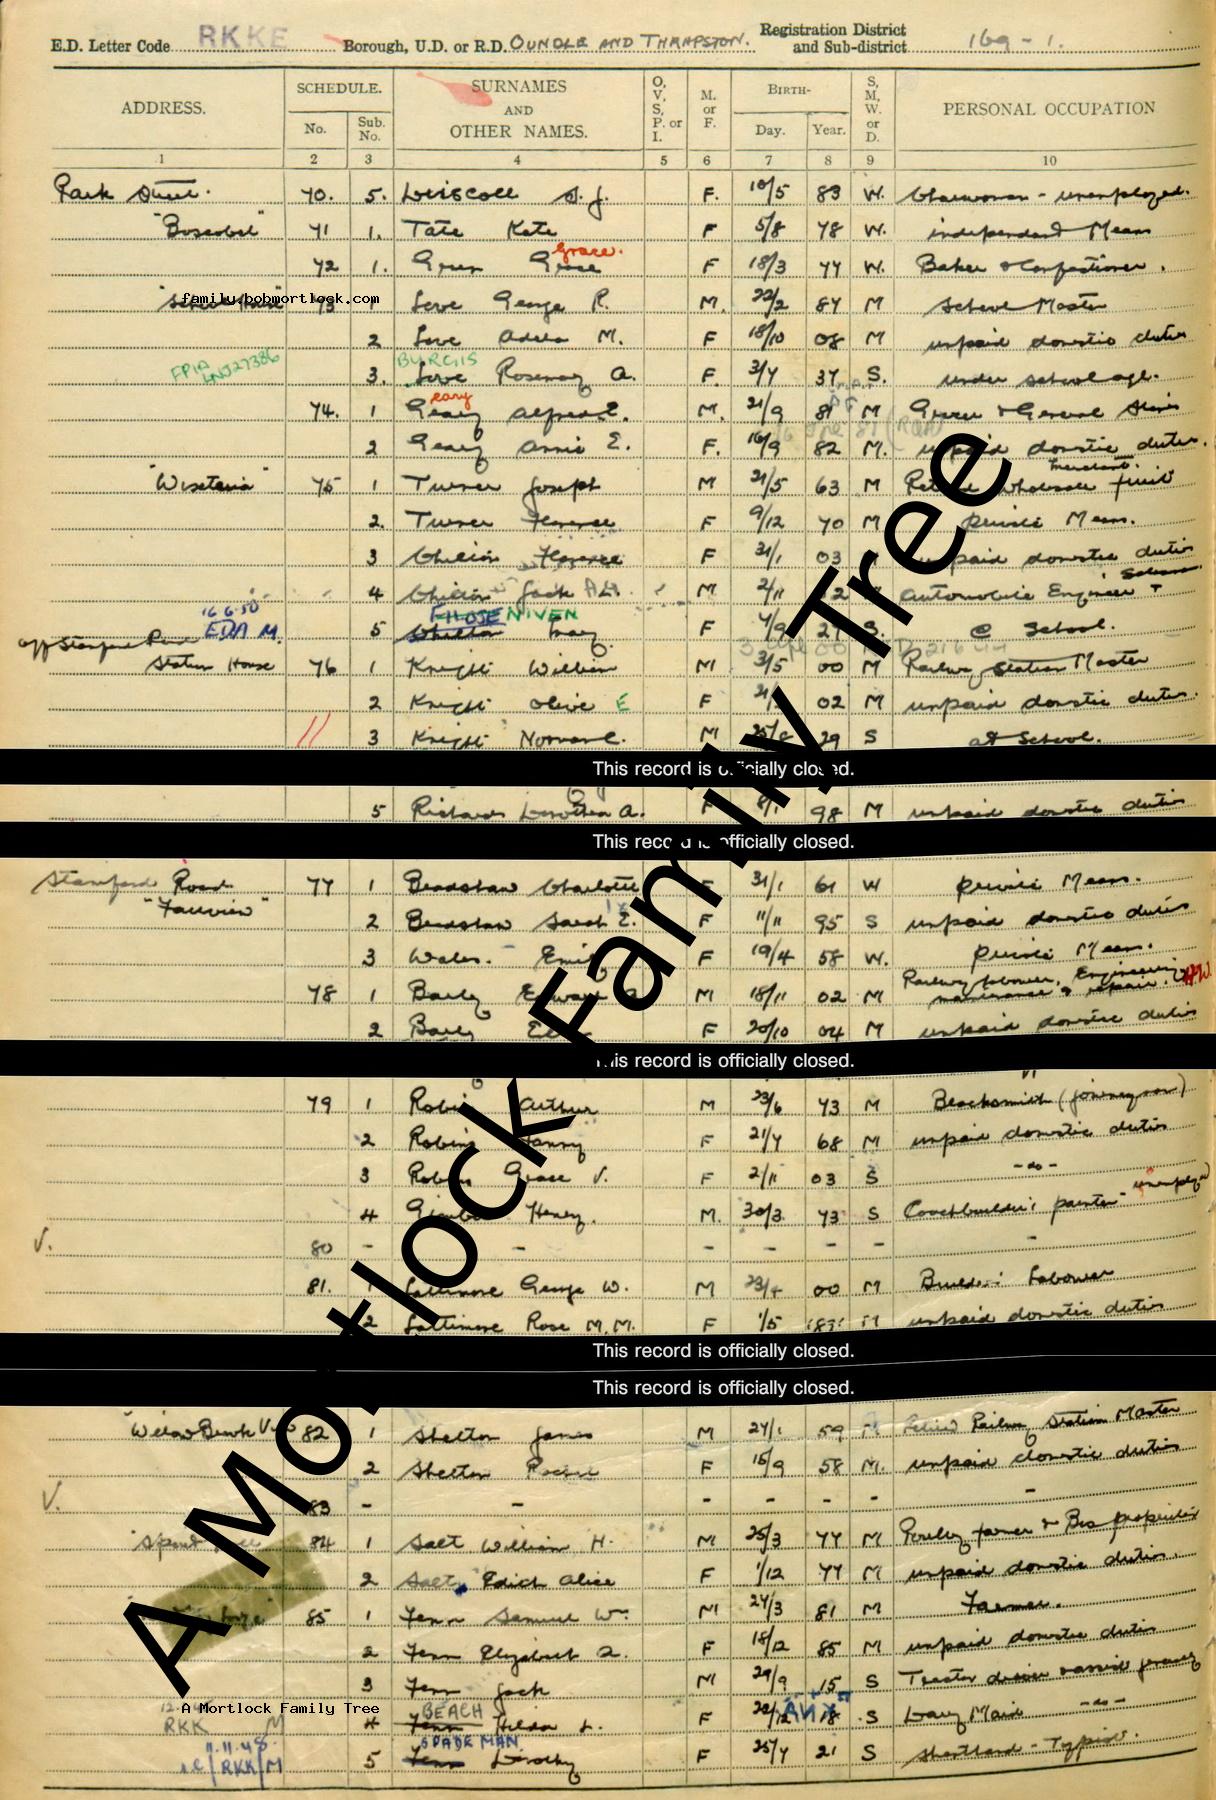 E.D. Letter Code RKKE Borough, U.D. or R.D. OUNDLE AND THRAPSTON. Registration District and Sub-district 169 - 1.
ADDRESS. SCHEDULE. No. Sub. No. SURNAMES AND OTHER NAMES. O, V, S, P. or I. M. or F. BIRTH- Day. Year. S, M, W. or D. PERSONAL OCCUPATION
1 2 3 4 5 6 7 8 9 10
Park Street. 70. 5. Driscoll S. J. F. 10/5 83 W. Charwoman - unemployed.
"Boscobel" 71 1. Tate Kate F 5/8 78 W. independent Means
Grace.
72 1. Green Grace F 18/3 77 W. Baker & Confectioner.
family.bobmortlock.com
"School House" 73 1 Love George R. M. 22/2 87 M School Master
2 Love Adela M. 18/10 08 M unpaid domestic duties
BURGIS
3. Love Rosemary A. F. 3/7 37 S. under school age.
eary
74. 1 Geary Alfred E. M. 21/9 81 M Grocer & General Stores
2 Geary Annie E. F. 16/9 82 M. unpaid domestic duties.
"Wisteria" 75 1 Turner Joseph M 21/5 63 M wholesale fruit merchant.
2. Turner Florence F 9/12 70 M private Means.
3 Chilton Florence F 31/1 03 unpaid domestic duties
4 Chilton Jack M 2/11 Automobile Engineer
16.6.50 EDA M. NIVEN
5 Chilton F 4/9 27 S. @ School.
off Stamford Road
Station House 76 1 Knight William M 3/5 00 M Railway Station Master
2 Knight Olive E F 02 M unpaid domestic duties.
3 Knight Norman C. M 29 S at School.
This record is officially closed.
5 Richards Dorothea A. F 8/1 98 M unpaid domestic duties
This record is officially closed.
Stamford Road 77 1 Bradshaw Charlotte F 31/1 61 W private Means.
"Fairview"
2 Bradshaw Sarah E. F 11/11 95 S unpaid domestic duties
3 Wales. Emily F 19/4 58 W. private Means.
78 1 M 18/11 02 M Railway Labourer, Engineering maintenance & repair. H.W.
2 F 20/10 04 M unpaid domestic duties
This record is officially closed.
79 1 Robins Arthur M 23/6 73 M Blacksmith (journeyman)
2 Robins Fanny F 21/7 68 M unpaid domestic duties
3 Robins Grace V. F 2/11 03 S -do-
4 Henry. M. 30/3 73 S Coachbuilder's painter - unemployed
V. 80 - - - - - -
81. 1 Lattimore George W. M 23/4 00 M Builder's Labourer
2 Lattimore Rose M.M. F 1/5 M unpaid domestic duties
This record is officially closed.
This record is officially closed.
82 1 Shelton James M 27/1 59 M Retired Railway Station Master
2 Shelton Rachel F 15/9 58 M. unpaid domestic duties
V. 83 - - - - - -
84 1 Salt William H. M 25/3 77 M Poultry farmer & Bus proprietor
2 Salt Edith Alice F 1/12 77 M unpaid domestic duties.
85 1 Fenn Samuel W. M 27/3 81 M Farmer.
2 Fenn Elizabeth F 18/12 85 M unpaid domestic duties
3 Fenn Jack M 29/9 15 S Tractor driver
A Mortlock Family Tree
BEACH
RKK M 4 Fenn Hilda L. F 18 S Dairy Maid -do-
SPADEMAN
11.11.48. RKK M 5 Fenn Dorothy F 25/7 21 S Shorthand - Typist.
A Mortlock Family Tree